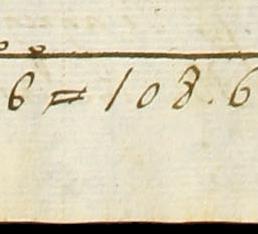 6 = 108.6